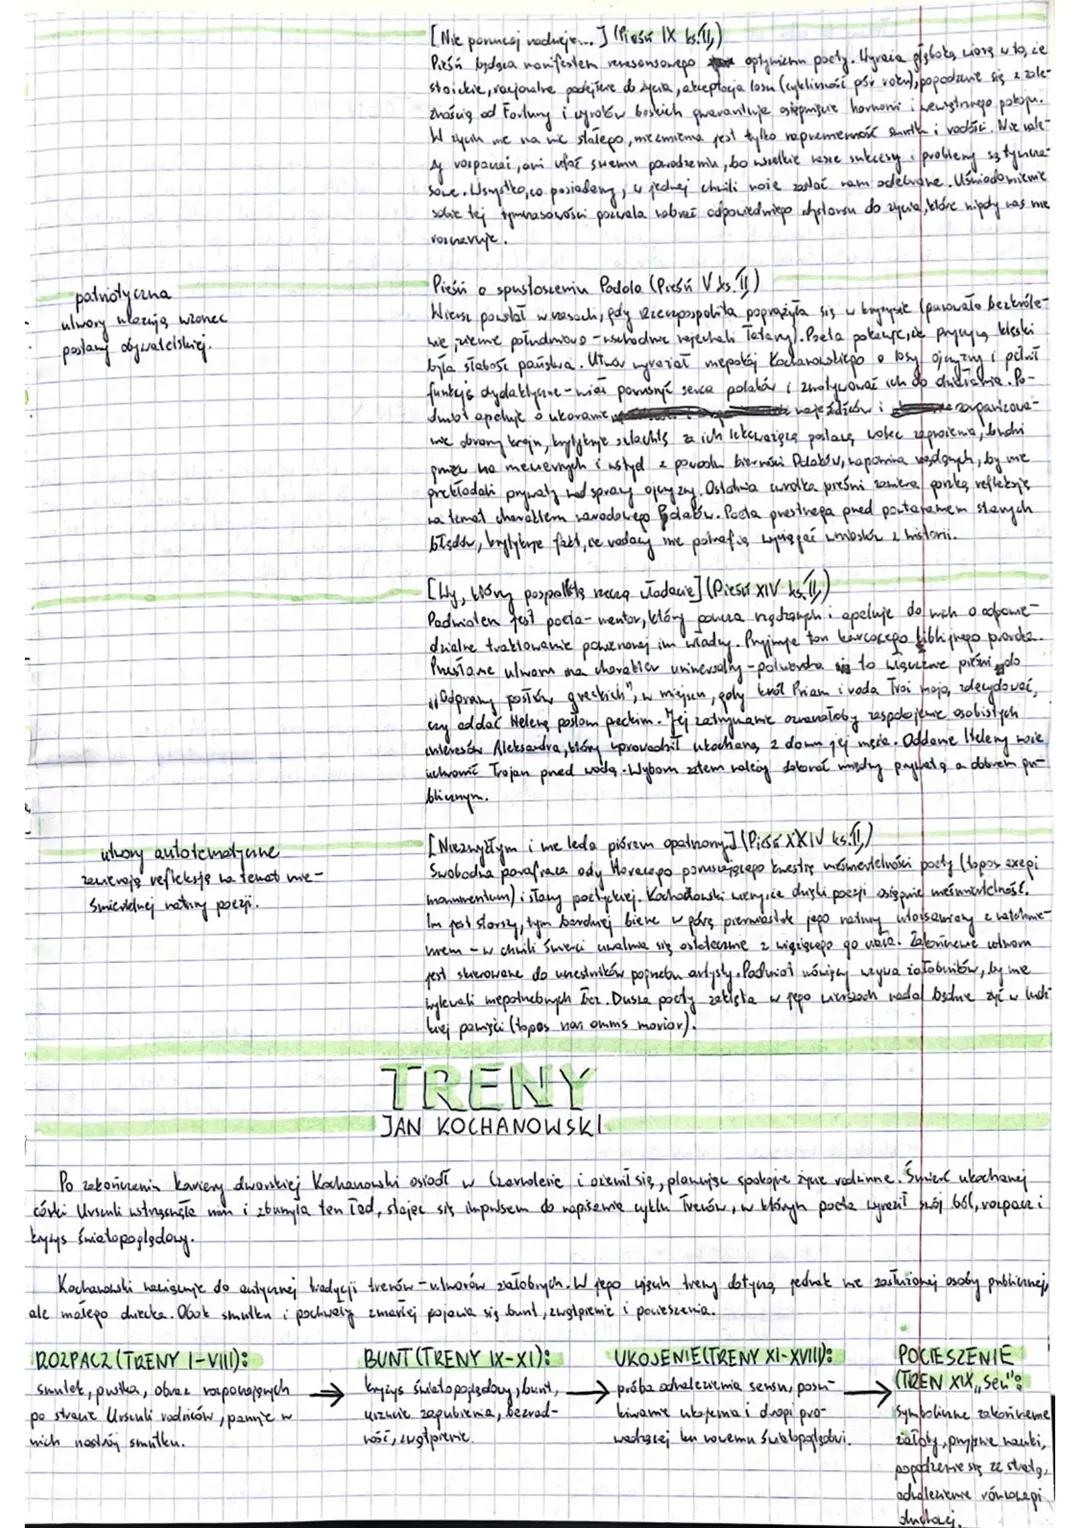 [Nie porzucaj nadzieje...] (Pieśń IX ks. II)
Pieśń będąca manifestem renesansowego optymizmu poety. Wyraża głęboką wiarę w to, że
stoickie, racjonalne podejście do życia, akceptacja losu (cykliczność pór roku), pogodzenie się z zale-
żnością od Fortuny i wyroków boskich gwarantuje osiągnięcie harmonii i wewnętrznego pokoju.
W życiu nie ma nic stałego, niezmienna jest tylko naprzemienność smutku i radości. Nie nale-
ży rozpaczać, ani ufać swemu powodzeniu, bo wszelkie nasze sukcesy i problemy są tymcza-
sowe. Wszystko, co posiadamy, w jednej chwili może zostać nam odebrane. Uświadomienie
sobie tej tymczasowości pozwala nabrać odpowiedniego dystansu do życia, które nigdy nas nie
rozczaruje.
patriotyczna
utwory ukazują wzorzec
postawy obywatelskiej.
Pieśń o spustoszeniu Podola (Pieśń V ks. II)
Wiersz powstał w czasach, gdy Rzeczpospolita pogrążyła się w kryzysie (panowało bezkróle-
wie, ziemie południowo-wschodnie najechali Tatarzy). Poeta pokazuje, że przyczyną klęski
była słabość państwa. Utwór wyrażał niepokój Kochanowskiego o losy ojczyzny i pełnił
funkcję dydaktyczne - miał poruszyć serca polaków i zmotywować ich do działania. Po-
dmiot apeluje o ukaranie najeźdźców i zorganizowa-
nie obrony kraju, krytykuje szlachtę za ich lekceważącą postawę wobec zagrożenia, budzi
gniew na niewiernych i wstyd z powodu bierności Polaków, napomina rządzących, by nie
przekładali prywaty nad sprawy ojczyzny. Ostatnia zwrotka pieśni zawiera gorzką refleksję
na temat charakteru narodowego Polaków. Poeta przestrzega przed powtarzaniem starych
błędów, krytykuje fakt, że rodacy nie potrafią wyciągać wniosków z historii.
[Wy, którzy pospolitą rzeczą władacie] (Pieśń XIV ks. II)
Podmiotem jest poeta-mentor, który poucza rządzących i apeluje do nich o odpowie-
dzialne traktowanie powierzonej im władzy. Przyjmuje ton karcącego biblijnego proroka.
Przesłanie utworu ma charakter uniwersalny - potwierdza to włączenie pieśni do
"Odprawy posłów greckich", w miejscu, gdy król Priam i rada Troi mają zdecydować,
czy oddać Helenę posłom greckim. Jej zatrzymanie oznaczałoby zaspokojenie osobistych
interesów Aleksandra, który uprowadził ukochaną z domu jej męża. Oddanie Heleny może
uchronić Trojan przed wojną. Wyboru zatem należy dokonać między prywatą a dobrem pu-
blicznym.
utwory autotematyczne
zawierają refleksję na temat nie-
śmiertelnej natury poezji.
[Niezwykłym i nie leda piórem opatrzony] (Pieśń XXIV ks. II)
Swobodna parafraza ody Horacego poruszającego kwestię nieśmiertelności poety (topos exegi
monumentum) i sławy poetyckiej. Kochanowski wierzy, że dzięki poezji osiągnie nieśmiertelność.
Im jest starszy, tym bardziej bierze w górę pierwiastek jego natury utożsamiany z natchnie-
niem - w chwili śmierci uwalnia się ostatecznie z więżącego go ciała. Zakończenie utworu
jest skierowane do uczestników pogrzebu artysty. Podmiot mówiący wzywa żałobników, by nie
wylewali niepotrzebnych łez. Dusza poety zaklęta w jego wierszach nadal będzie żyć w ludz-
kiej pamięci (topos non omnis moriar).
TRENY
JAN KOCHANOWSKI
Po zakończeniu kariery dworskiej Kochanowski osiadł w Czarnolesie i ożenił się, planując spokojne życie rodzinne. Śmierć ukochanej
córki Urszuli wstrząsnęła nim i zburzyła ten ład, stając się impulsem do napisania cyklu Trenów, w których poeta wyraził swój ból, rozpacz i
kryzys światopoglądowy.
Kochanowski nawiązuje do antycznej tradycji trenów - utworów żałobnych. W jego ujęciu treny dotyczą jednak nie zasłużonej osoby publicznej,
ale małego dziecka. Obok smutku i pochwały zmarłej pojawia się bunt, zwątpienie i pocieszenia.
ROZPACZ (TRENY I-VIII):
smutek, pustka, obraz rozpaczających
po stracie Urszuli rodziców, panuje w
nich nastrój smutku.
BUNT (TRENY IX-XI):
kryzys światopoglądowy, bunt,
uczucie zagubienia, bezrad-
ność, zwątpienie.
UKOJENIE (TRENY XI-XVIII):
próba odnalezienia sensu, poszu-
kiwanie ukojenia i drogi pro-
wadzącej ku nowemu światopoglądowi.
POCIESZENIE
(TREN XIX "Sen"):
symboliczne zakończenie
żałoby, przyjęcie nauki,
pogodzenie się ze stratą,
odnalezienie równowagi
duchowej.